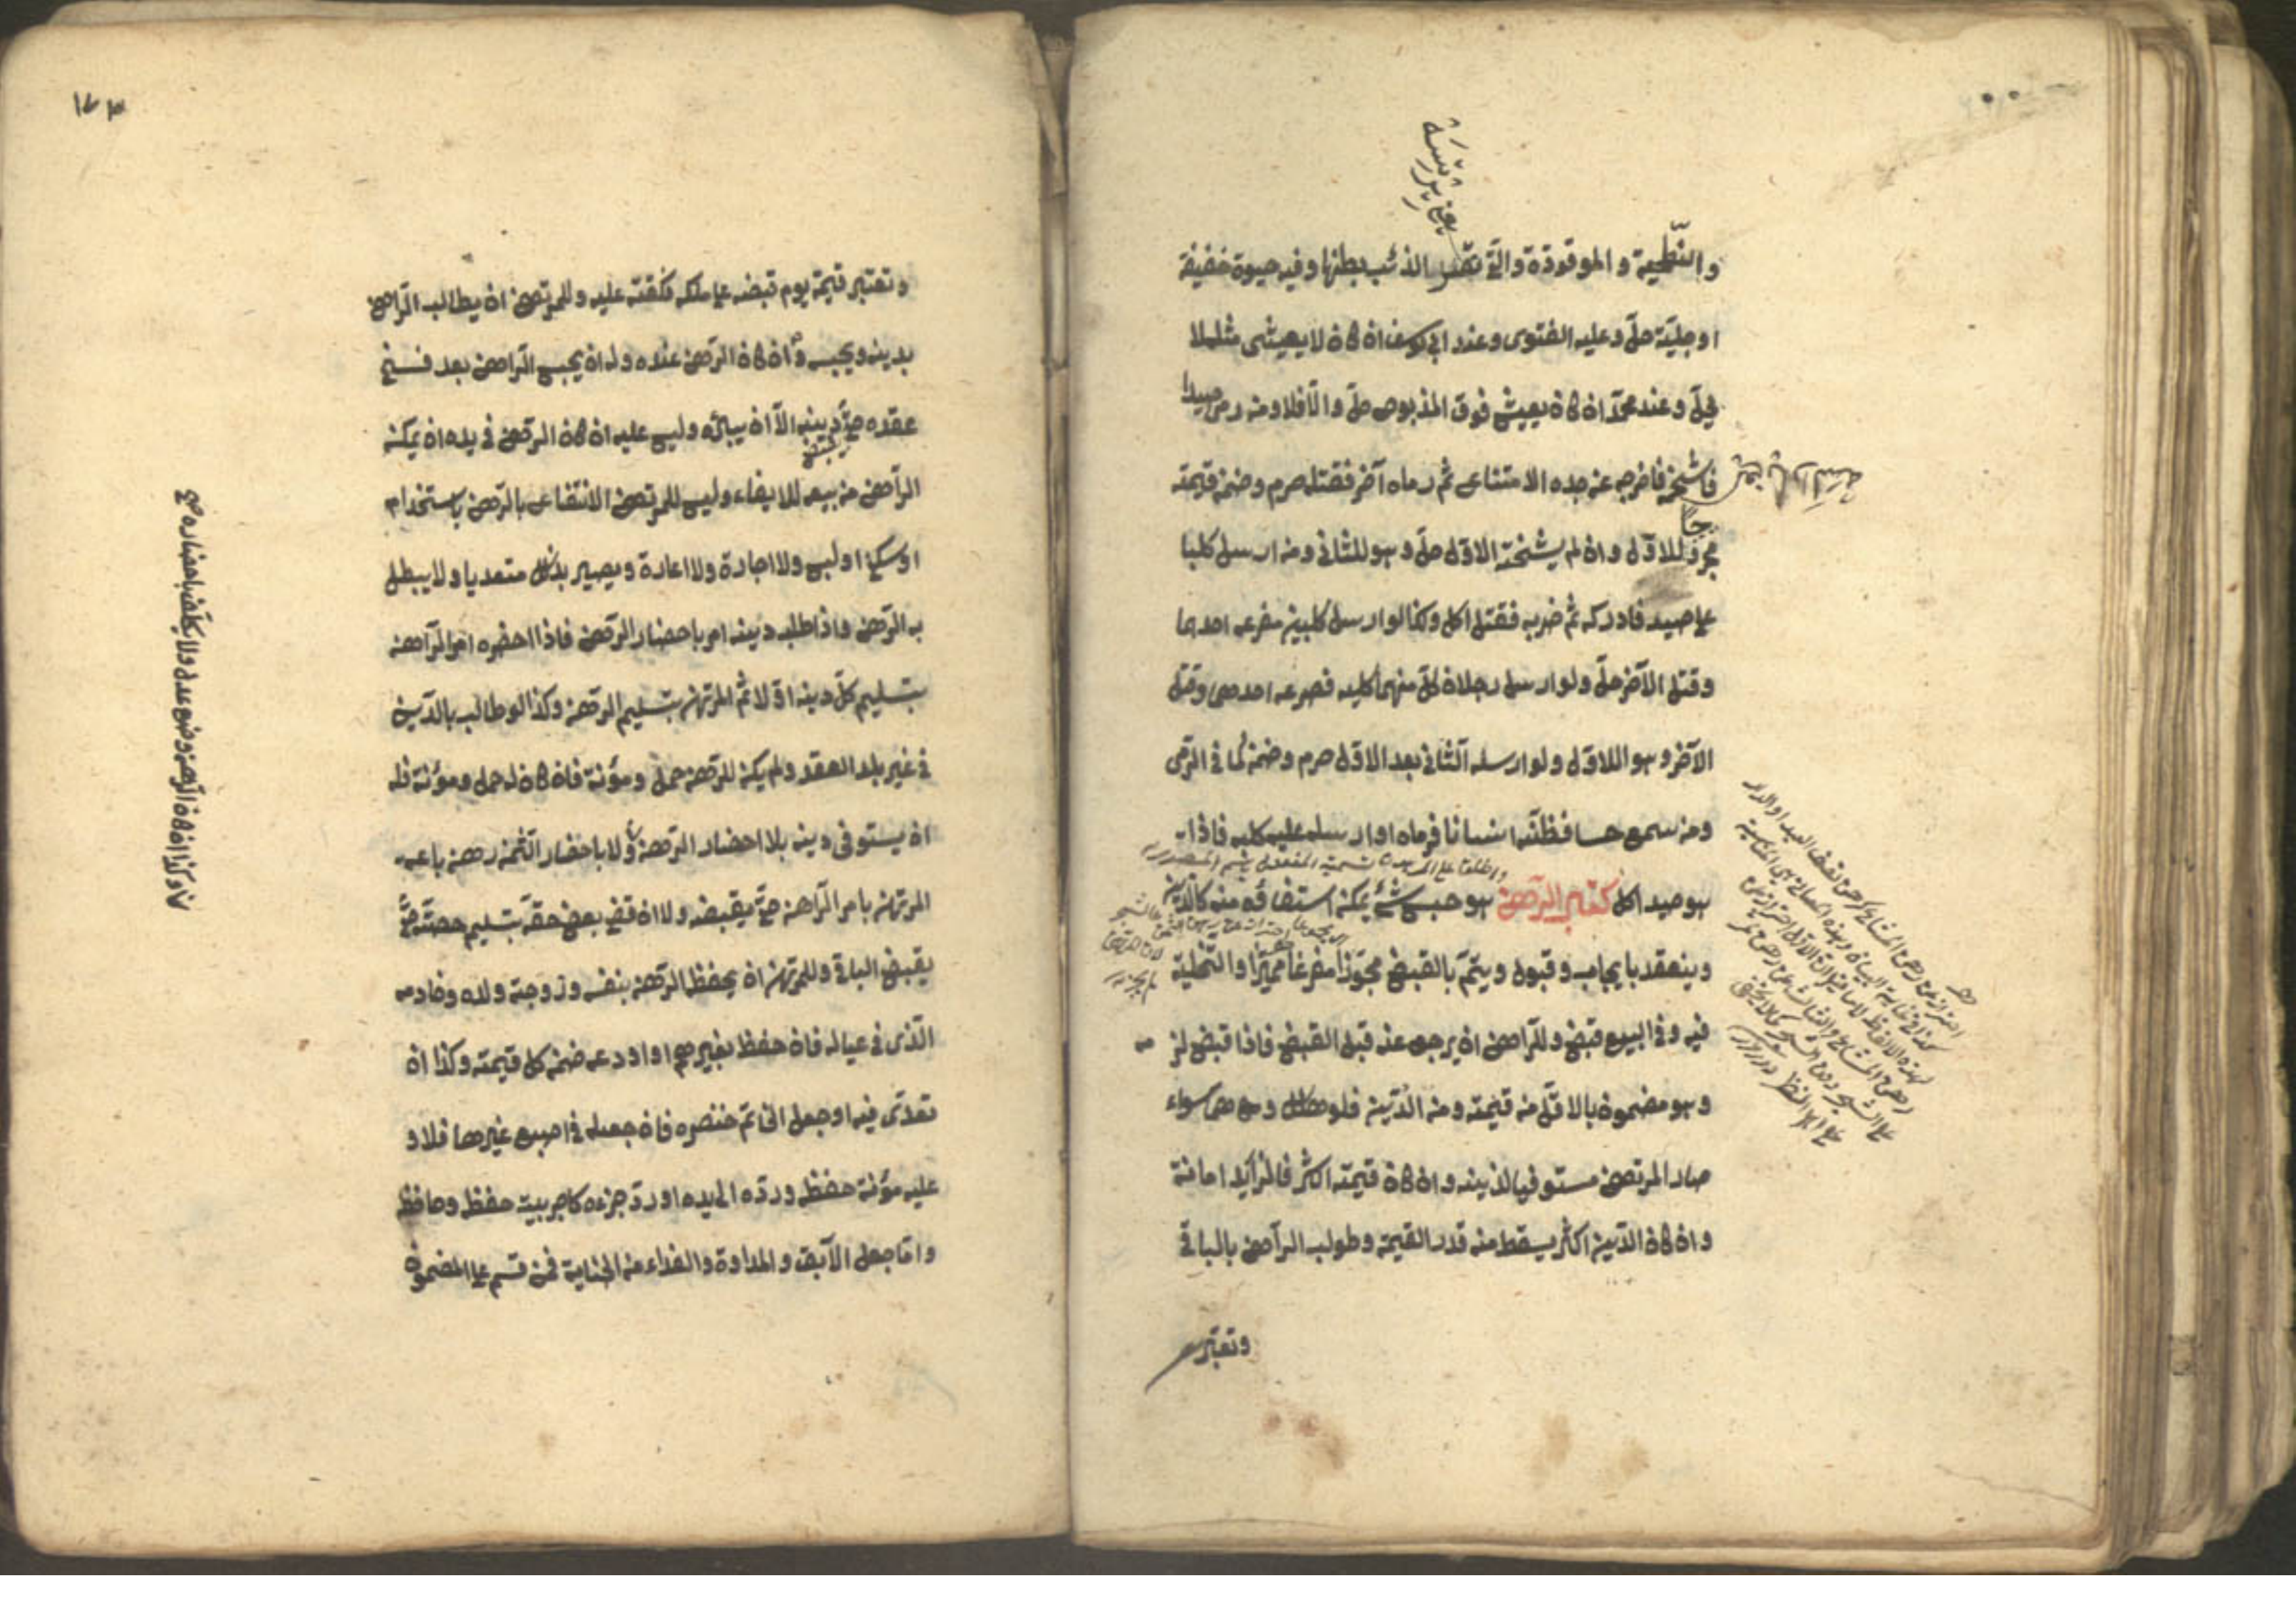 والنّطيحة والموقوذة والتي بقر الذئب بطنها وفيه حيوة خفيفة
او جليّة حلّ وعليه الفتوى وعند ابي يوسف ان كان لا يعيش مثله لا
يحلّ وعند محمّد ان كان يعيش فوق المذبوح حلّ والّا فلا ومن رمى صيدا
فاثخنه فاخرجه عن حدّه الامتناع ثم رماه آخر فقتله حرم وضمن قيمته
مجروحا للاوّل وان لم يثخنه الاوّل حلّ وهو للثاني ومن ارسل كلبا
على صيد فادركه ثم ضربه فقتل اكل وكذا لو ارسل كلبين فصرعه احدهما
وقتل الآخر حلّ ولو ارسل رجلان كلّ منهما كلبه فصرعه احدهما وقتل
الآخر وهو للاوّل ولو ارسله الثاني بعد الاوّل حرم وضمن كما في الرّمى
ومن سمع حسا فظنّه انسانا فرماه او ارسل عليه كلبه فاذا
هو صيد اكل كتاب الرّهن هو حبس شيء يمكن استيفاؤه منه كالدّين
وينعقد بايجاب وقبول ويتمّ بالقبض محوّزا مفرغا مميّزا والتّخلية
فيه وفي البيع قبض وللرّاهن ان يرجع عنه قبل القبض فاذا قبض لزم
وهو مضمون بالاقلّ من قيمته ومن الدّين فلو هلك وهما سواء
صار المرتهن مستوفيا لدينه وان كان قيمته اكثر فالزائد امانة
وان كان الدّين اكثر يسقط منه قدر القيمة وطولب الراهن بالباقي
وتعتبر
١٧٣
وتعتبر قيمته يوم قبضه على ملكه فنفقته عليه وللمرتهن ان يطالب الرّاهن
بدينه ويحبسه وان كان الرّهن عنده وله ان يحبس الرّاهن بعد فسخ
عقده حتى يقبض دينه الّا ان يبرئه وليس عليه ان كان الرّهن في يده ان يمكن
الرّاهن من بيعه للايفاء وليس للمرتهن الانتفاع بالرّهن باستخدام
او سكنى او لبس ولا اجارة ولا اعارة ويصير بذلك متعديا ولا يبطل
به الرّهن واذا طلب دينه امر باحضار الرّهن فاذا احضره امر الرّاهن
بتسليم كلّ دينه اوّلا ثم المرتهن بتسليم الرّهن وكذا لو طالب بالدّين
في غير بلد العقد ولم يكن للرّهن حمل ومؤنة فان كان له حمل ومؤنة فله
ان يستوفى دينه بلا احضار الرّهن ولا باحضار الثمن رهن باعه
المرتهن بامر الرّاهن حتى يقبضه ولا ان قضى بعض حقّه بتسليم حصّته حتى
يقبض الباقي وللمرتهن ان يحفظ الرّهن بنفسه وزوجته وولده وخادمه
الّذى في عياله فان حفظ بغيرهم او اودعه ضمن كل قيمته وكذا ان
تعدّى فيه او جعل الخاتم خنصره فان جعله في اصبع غيرها فلا و
عليه مؤنة حفظه وردّه الى يده او ردّ جزءه كاجر بيت حفظه وحافظه
وامّا جعل الآبق والمداوة والفداء من الجناية فمن قسم على المضمون
وكذا ان كان الرّهن وضع عند عدل ولا يكلّف باحضاره صح